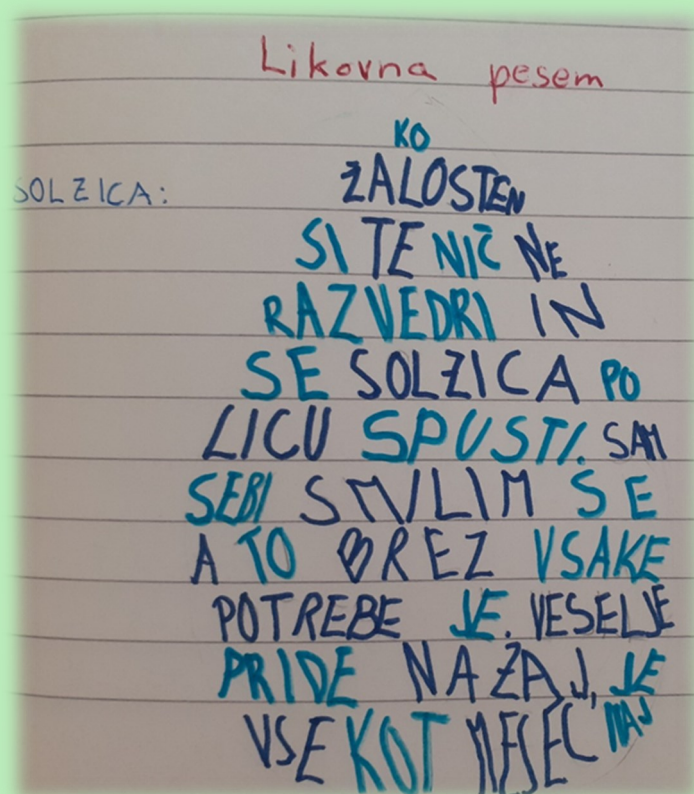 Likovna pesem
SOLZICA:
KO
ŽALOSTEN
SI TE NIČ NE
RAZVEDRI IN
SE SOLZICA PO
LICU SPUSTI. SAM
SEBI SMILIM SE
A TO BREZ VSAKE
POTREBE JE. VESELJE
PRIDE NAZAJ, JE
VSE KOT MESEC MAJ